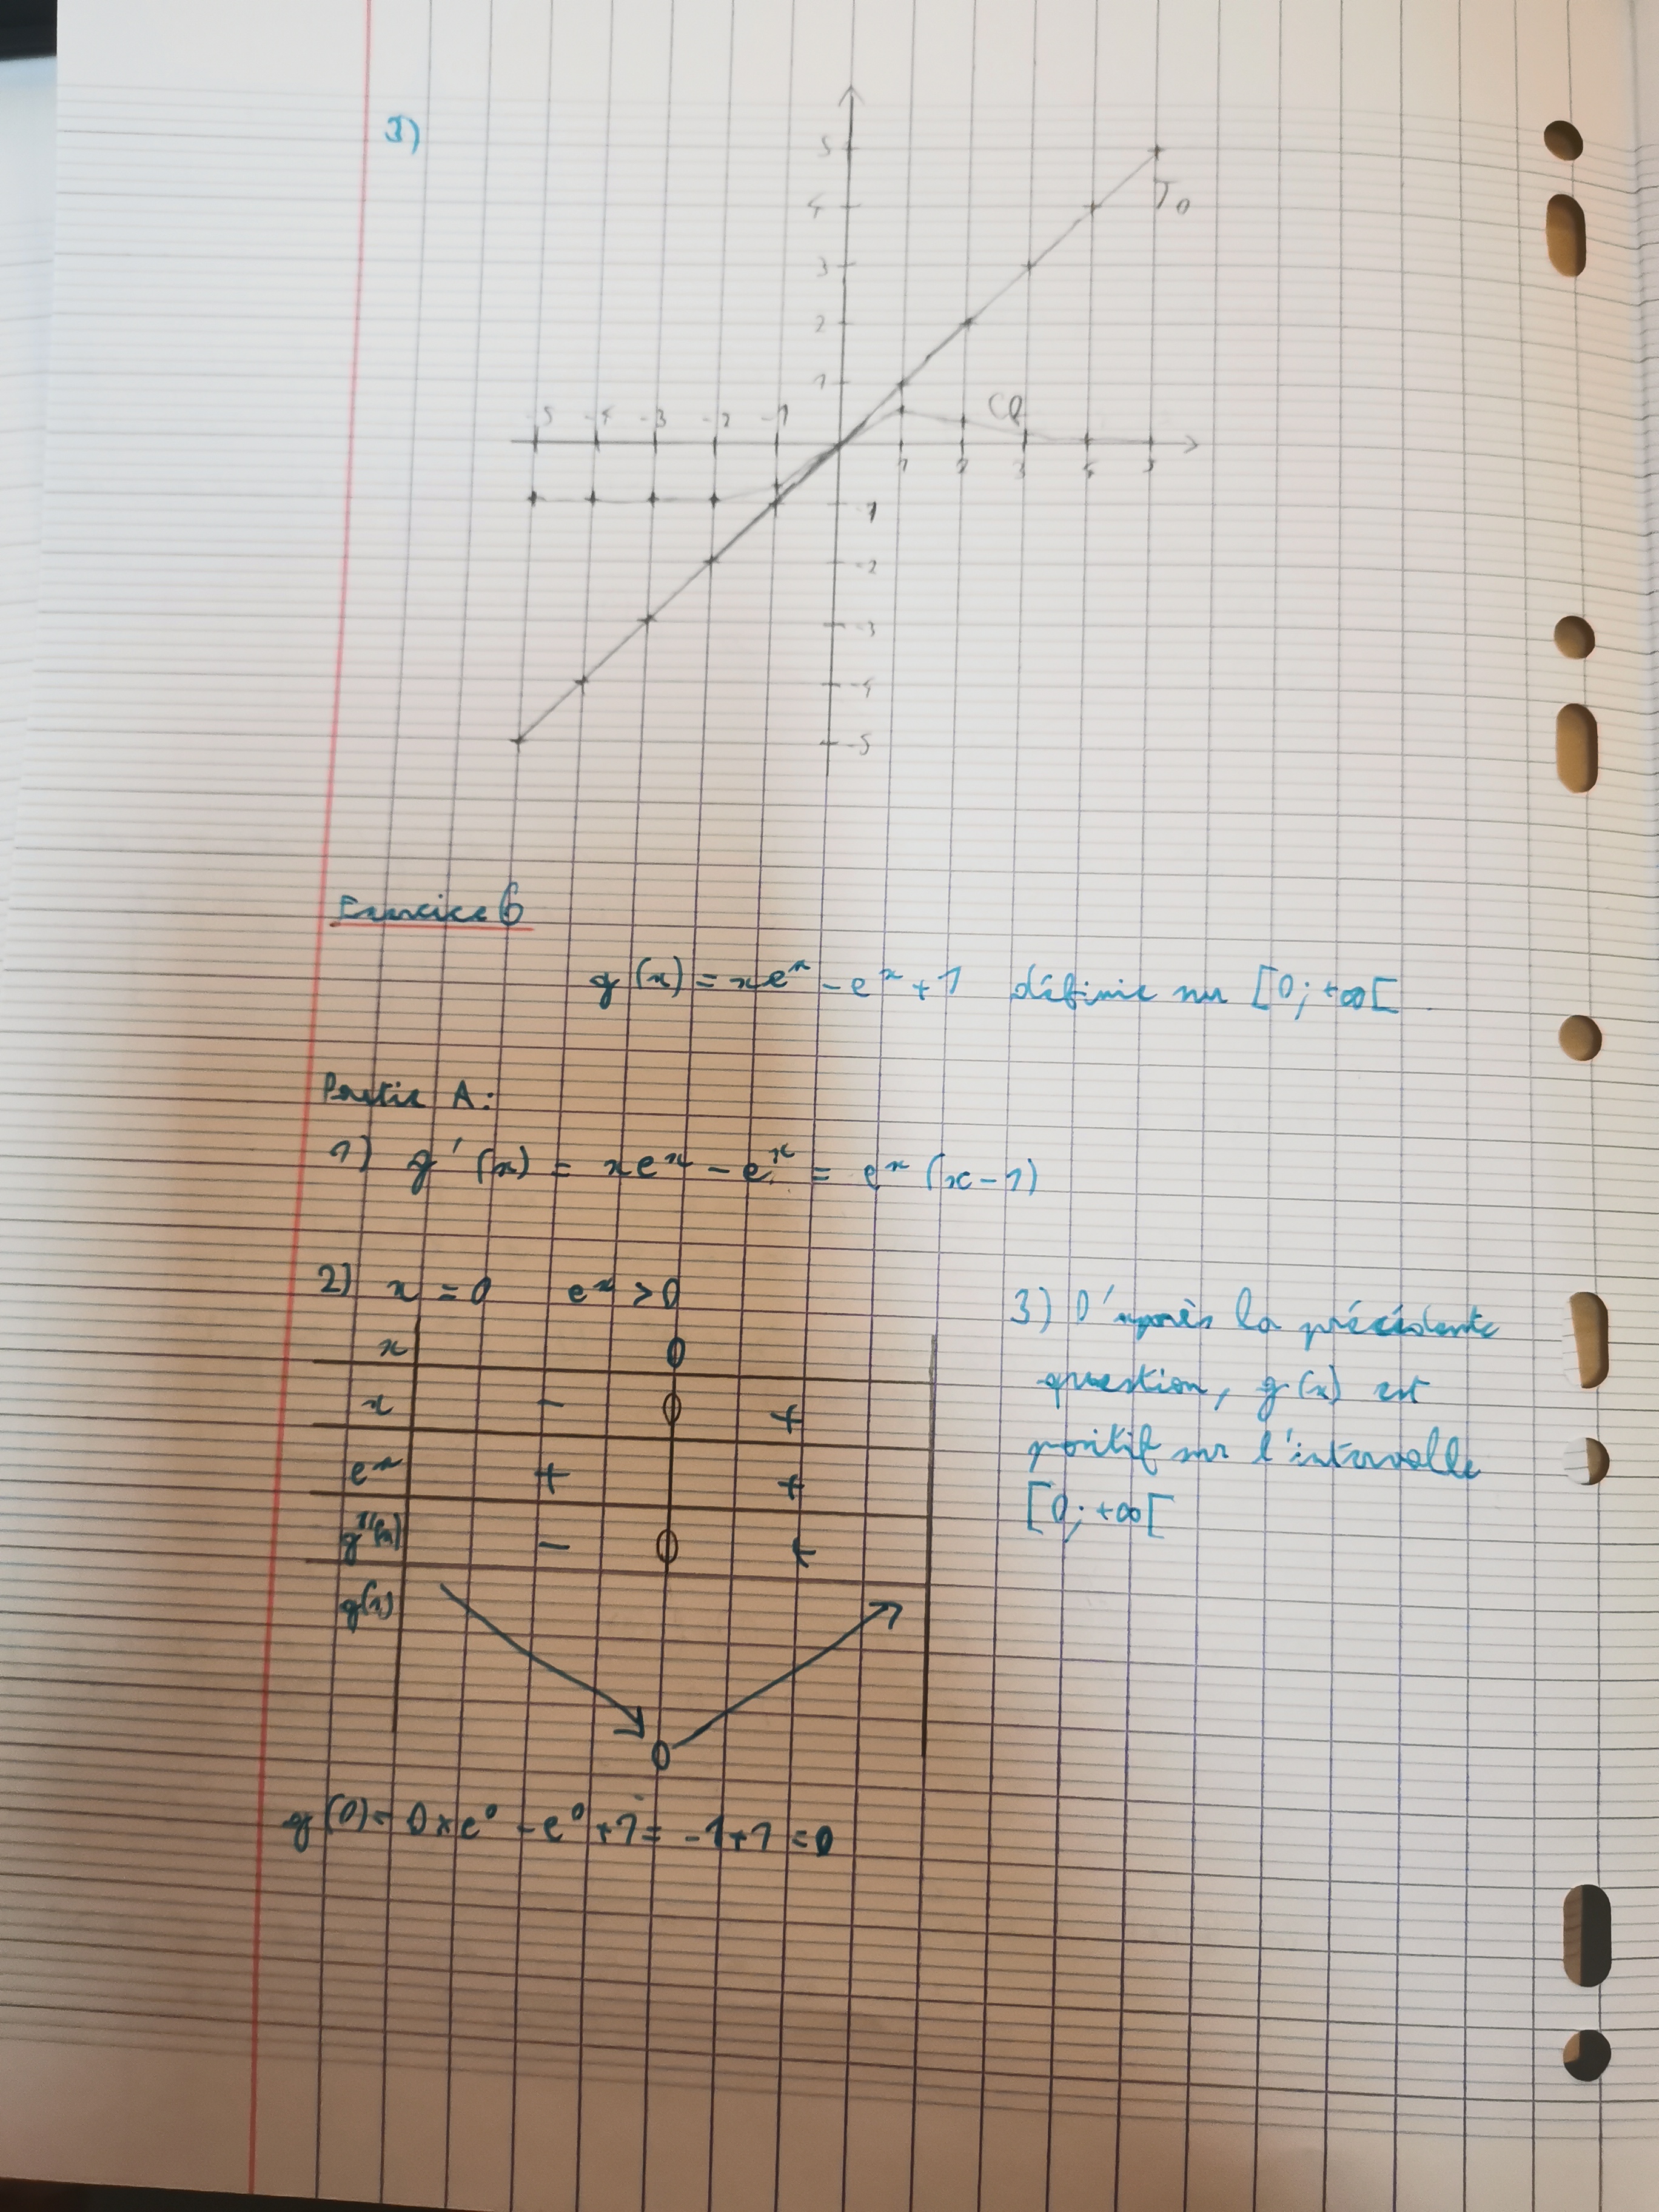 3)
5
4
3
2
1
-5 -4 -3 -2 -1
1 2 3 4 5
-1
-2
-3
-4
-5
T0
Cf
Exercice 6
g(x) = xe^x - e^x + 1 définie sur [0; +∞[
Partie A:
1) g'(x) = xe^x - e^x = e^x (x - 1)
2) x = 0 e^x > 0
x 0
x - 0 +
e^x + +
g'(x) - 0 +
g(x)
0
g(0) = 0 × e^0 - e^0 + 1 = -1 + 1 = 0
3) D'après la précédente
question, g(x) est
positif sur l'intervalle
[0; +∞[